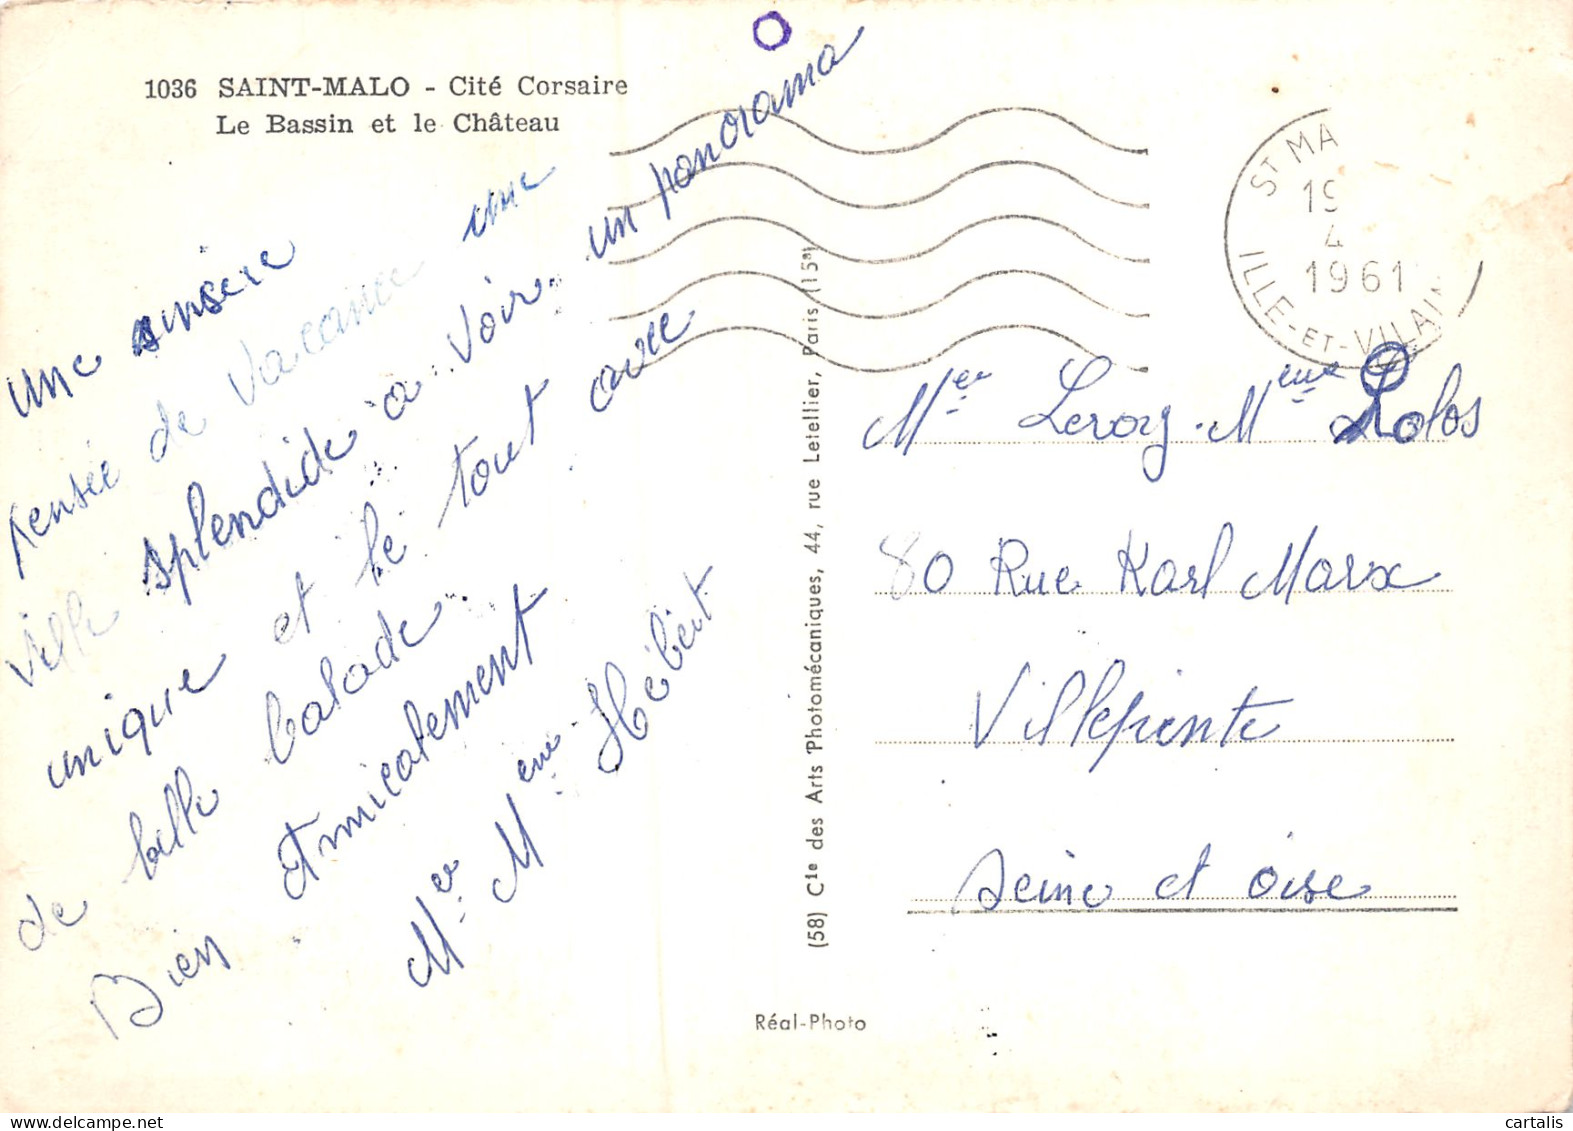 1036 SAINT-MALO - Cité Corsaire
Le Bassin et le Château
une sinsère
pensée de Vacance une
ville splendide a Voir. un panorama
unique et le tout avec
de belle balade.
Bien Amicalement
Mer Meme Hébert
(58) Cie des Arts Photomécaniques, 44, rue Letellier, Paris (15e)
Réal-Photo
ST MA
19
4
1961
ILLE-ET-VILAIN
Mer Leroy. Meme Lolos
80 Rue Karl Marx
Villepinte
Seine et Oise
cartalis